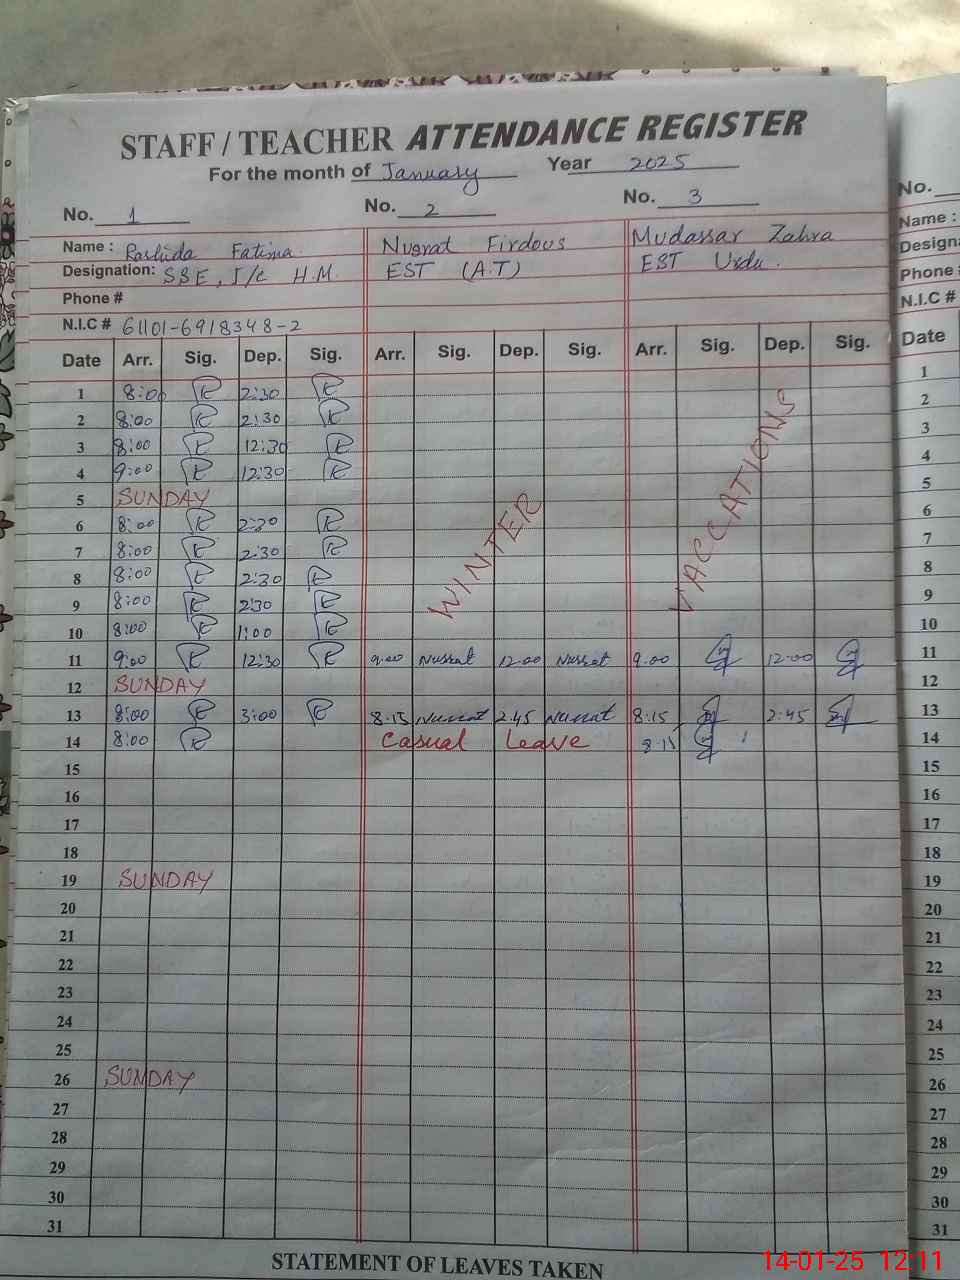 STAFF / TEACHER ATTENDANCE REGISTER
For the month of January Year 2025
No. 1 No. 2 No. 3
Name : Rashida Fatima. Nusrat Firdous Mudassar Zahra
Designation: SSE, I/c H.M. EST (A.T) EST Urdu.
Phone #
N.I.C # 61101-6918348-2
Date Arr. Sig. Dep. Sig. Arr. Sig. Dep. Sig. Arr. Sig. Dep. Sig.
1 8:00 2:30
2 8:00 2:30
3 8:00 12:30
4 9:00 12:30
5 SUNDAY
6 8:00 2:30
7 8:00 2:30
8 8:00 2:30
9 8:00 2:30
10 8:00 1:00
WINTER VACCATIONS
11 9:00 12:30 9:00 Nusrat 12:00 Nusrat 9:00 12:00
12 SUNDAY
13 8:00 3:00 8:15 Nusrat 2:45 Nusrat 8:15 2:45
14 8:00 Casual Leave 8:15
15
16
17
18
19 SUNDAY
20
21
22
23
24
25
26 SUNDAY
27
28
29
30
31
STATEMENT OF LEAVES TAKEN
No.
Name :
Design
Phone
N.I.C #
Date
1
2
3
4
5
6
7
8
9
10
11
12
13
14
15
16
17
18
19
20
21
22
23
24
25
26
27
28
29
30
31
14-01-25 12:11